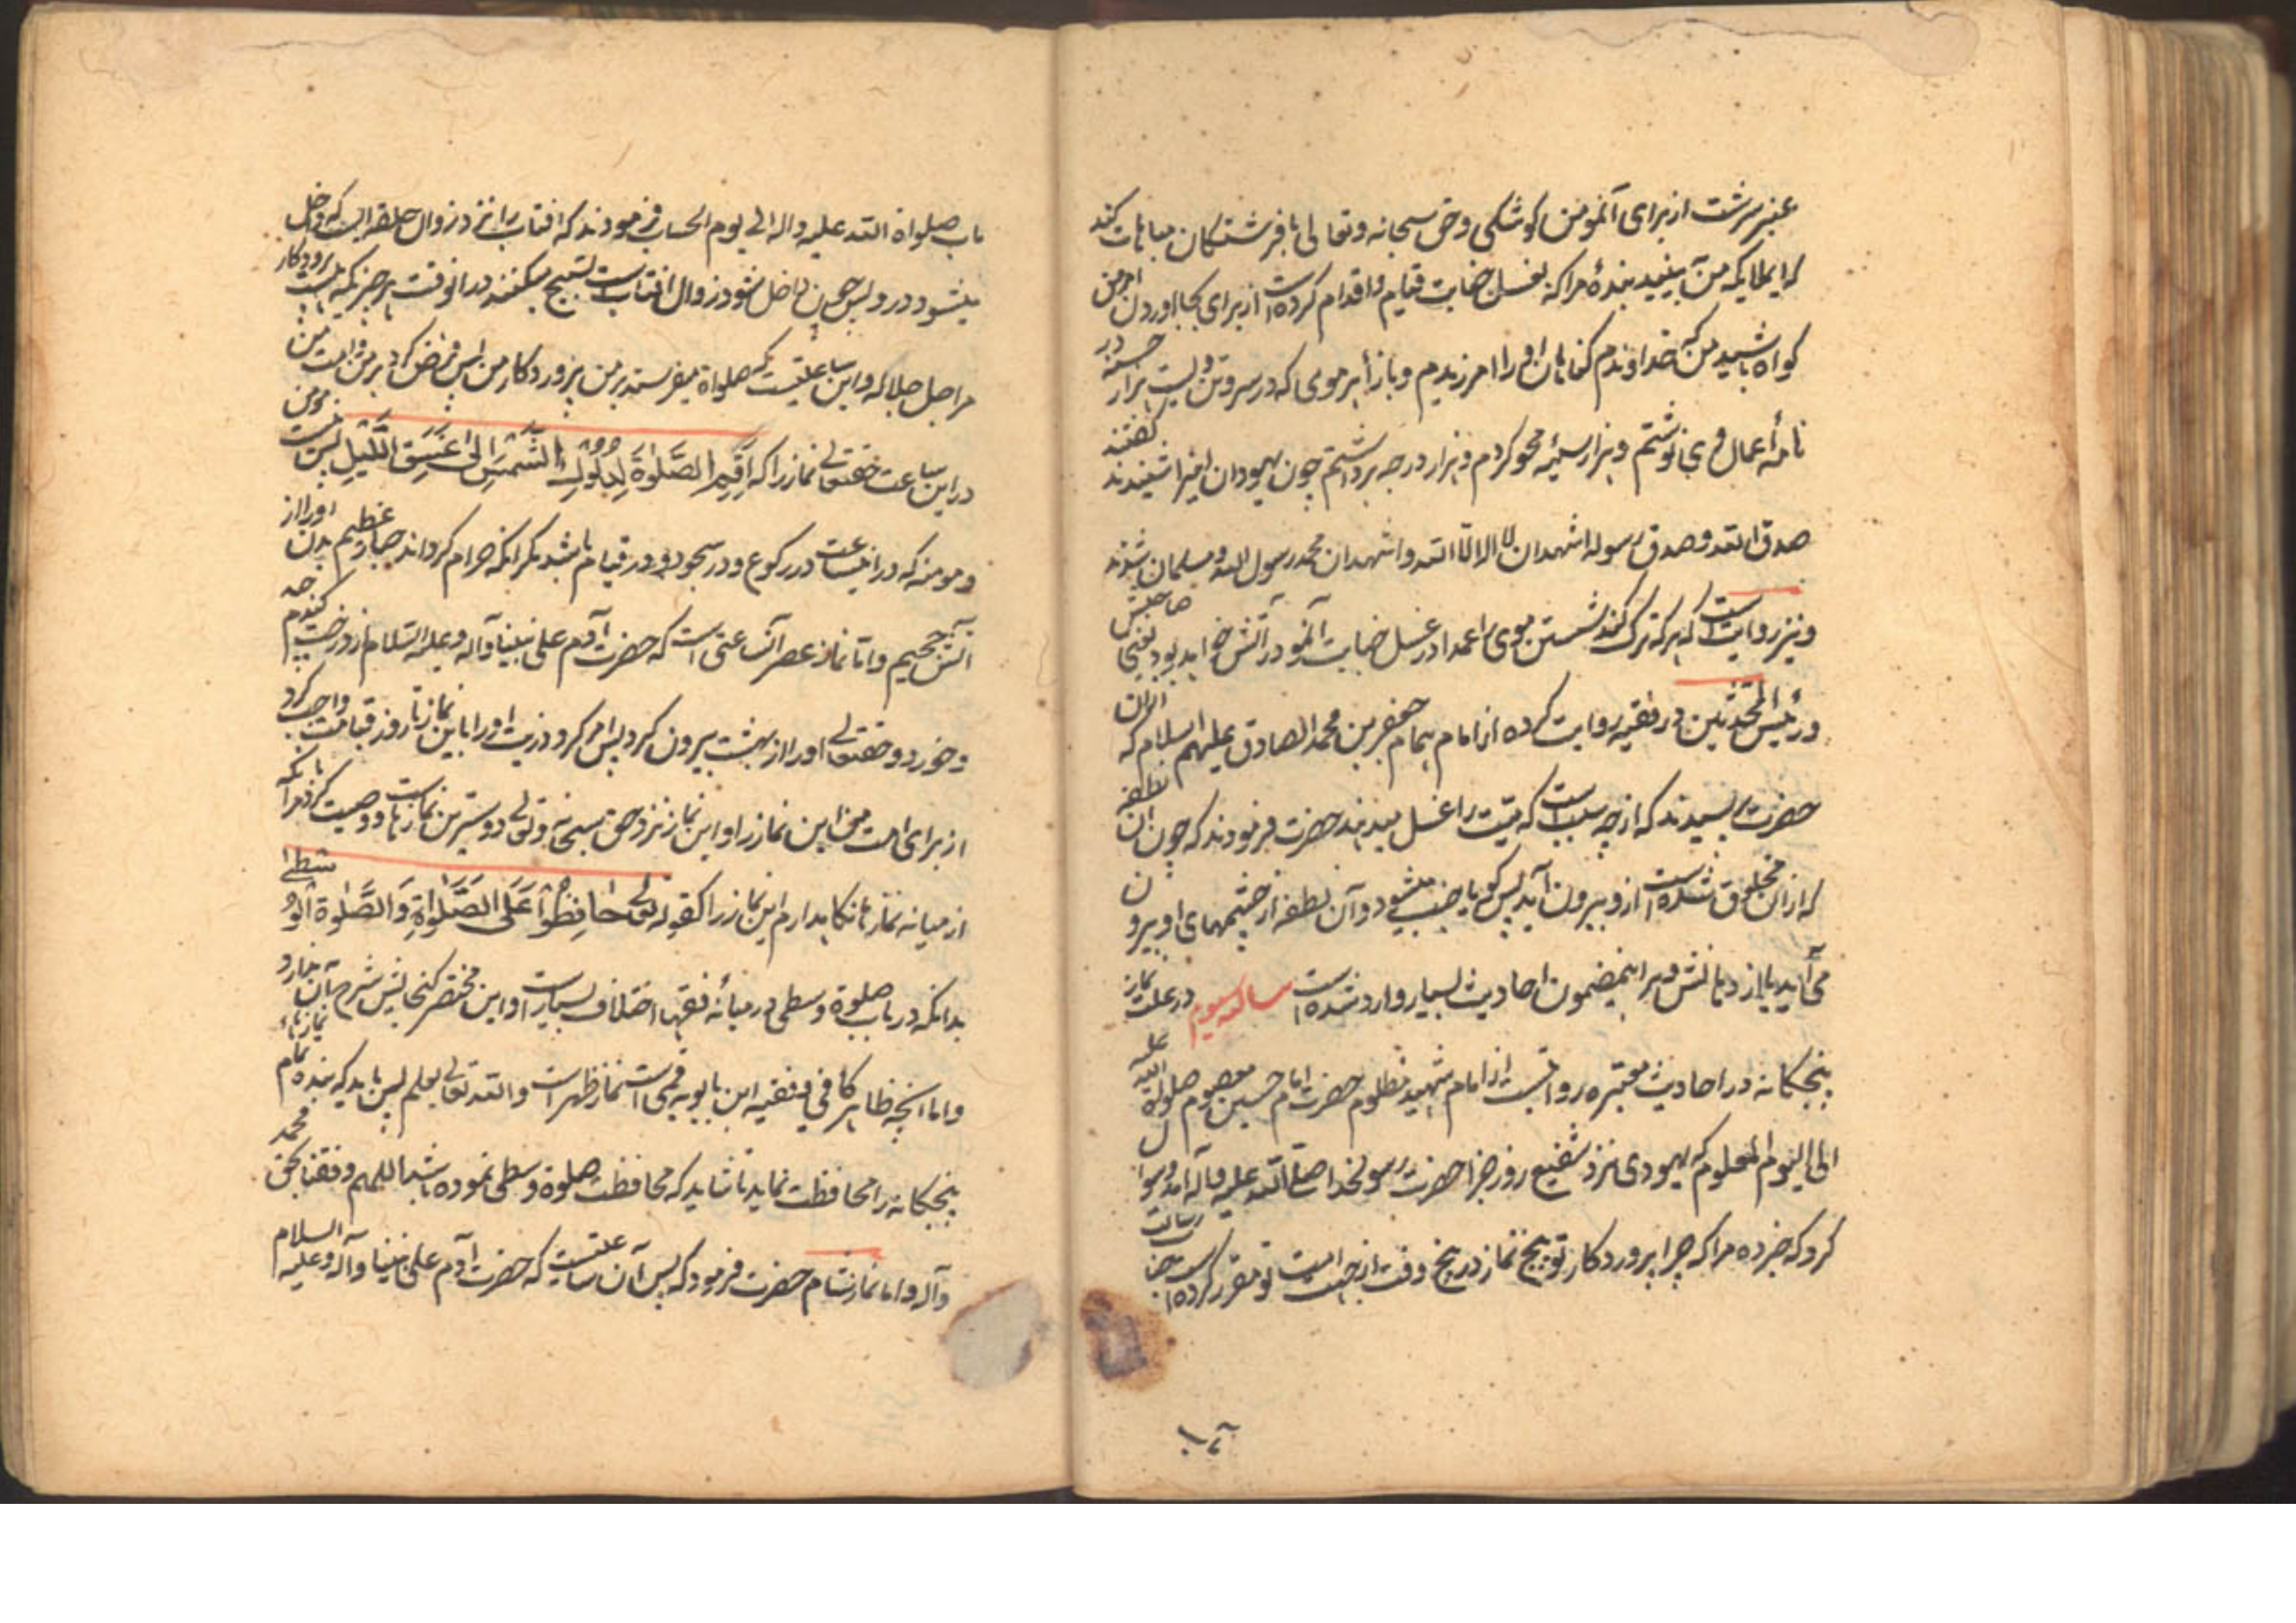 عنبر سرشت از برای آنمؤمن کوشکی و حق سبحانه و تعالی با فرشتگان مباهات کند
که ای ملایکه من بینید بندهٔ مرا که بغسل جنابت قیام و اقدام کرده است از برای بجا اوردن امر من
کواه باشید که من که خداوندم کناهان او را امرزیدم و بازاء هر موی که در سر و تن ویست هزار حسنه در
نامهٔ اعمال وی نوشتم و هزار سیئه محو کردم و هزار درجه برداشتم چون یهودان اینرا شنیدند کفتند
صدق الله و صدق رسوله اشهد ان لا اله الا الله و اشهد ان محمد رسول الله و مسلمان شدند
و نیز روایت است که هر که ترک کند شستن موی را عمدا در غسل جنابت آنمو در آتش خواهد بود یعنی صاحبش
و رئیس المحدثین در فقیه روایت کرده از امام بهمام جعفر بن محمد الصادق علیهم السلام که ازان
حضرت پرسیدند که از چه سبب است که میت را غسل میدهند حضرت فرمودند که چون ان نطفه
که ازان مخلوق شده است ازو بیرون آید پس کویا جنب میشود و آن نطفه از چشمهای او بیرون
می آید یا از دهانش و برا ینمضمون احادیث بسیار وارد شده است مساله سیوم در علت نماز
پنجکانه در احادیث معتبره روایتست از امام شهید مظلوم حضرت امام حسین معصوم صلواة الله علیه
الی الیوم المعلوم که یهودی نزد شفیع روز جزا حضرت رسولخدا صلی الله علیه و آله امد و سوال
کرد که خبر ده مرا که چرا پروردکار تو پنج نماز در پنج وقت از جهت امت تو مقرر کرده است جناب رسالت
ماب صلواة الله علیه و اله الی یوم الحساب فرمودند که افتاب را نزد زوال حلقه ایست که داخل
میشود در و پس چون داخل شود زوال افتاب است تسبیح میکنند در انوقت هر چیز که هست پروردکار
مرا جل جلاله و این ساعتیست که صلواة میفرستد بر من پروردکار من پس فرض کرد بر من و امت من
در این ساعت حقتعالی نماز را که اَقِمِ الصَّلٰوةَ لِدُلُوکِ الشَّمْسِ اِلیٰ غَسَقِ اللَّیْلِ پس نیست مؤمن
و مومنه که در انساعت در رکوع و در سجود و در قیام باشد مکر انکه حرام کرداند جبار عظیم بدن او را از
آتش جحیم و اما نماز عصر آنساعتی است که حضرت آدم علی نبینا و آله و علیه السلام از درخت کندم
و خورد و حقتعالی او را از بهشت بیرون کرد پس امر کرد ذریت او را باین نماز تا روز قیامت واجب کرد
از برای امت من این نماز را و این نماز نزد حق سبحانه و تعالی دوسترین نمازهاست و وصیت کرد مرا بانکه
از میانه نمازها نکاهدارم این نماز را کقوله تعالی حَافِظُوا عَلَی الصَّلَوَاةِ وَ الصَّلٰوةِ الْوُسْطیٰ
بدانکه در باب صلوة وسطی در میانهٔ فقها اختلاف بسیار است و این مختصر کنجایش شرح آن ندارد
و اما انچه ظاهر کافی و فقیه ابن بابویه قمی است نماز ظهر است و الله تعالی یعلم پس باید که بنده تمام نمازهاء
پنجکانه را محافظت نماید تا شاید که محافظت صلوة وسطی نموده باشد اللهم وفقنا بحق محمد
و آله و اما نماز شام حضرت فرمود که پس آن ساعتیست که حضرت آدم علی نبینا و آله و علیه السلام